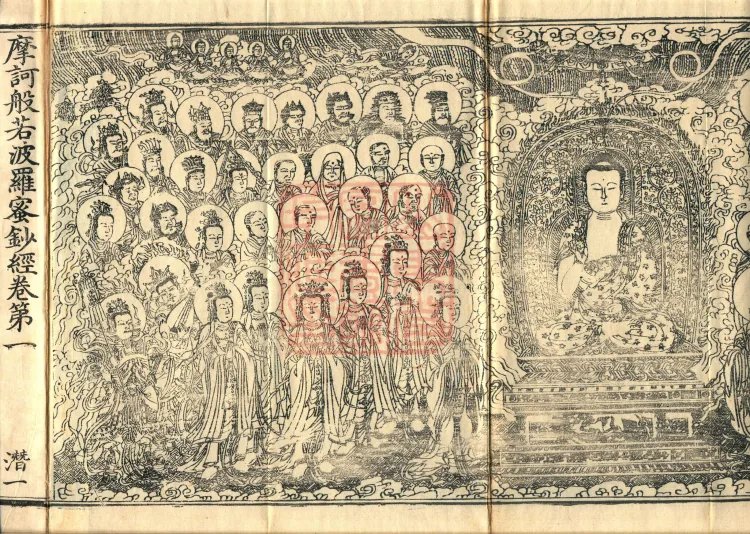 摩訶般若波羅蜜鈔經卷第一
潛一